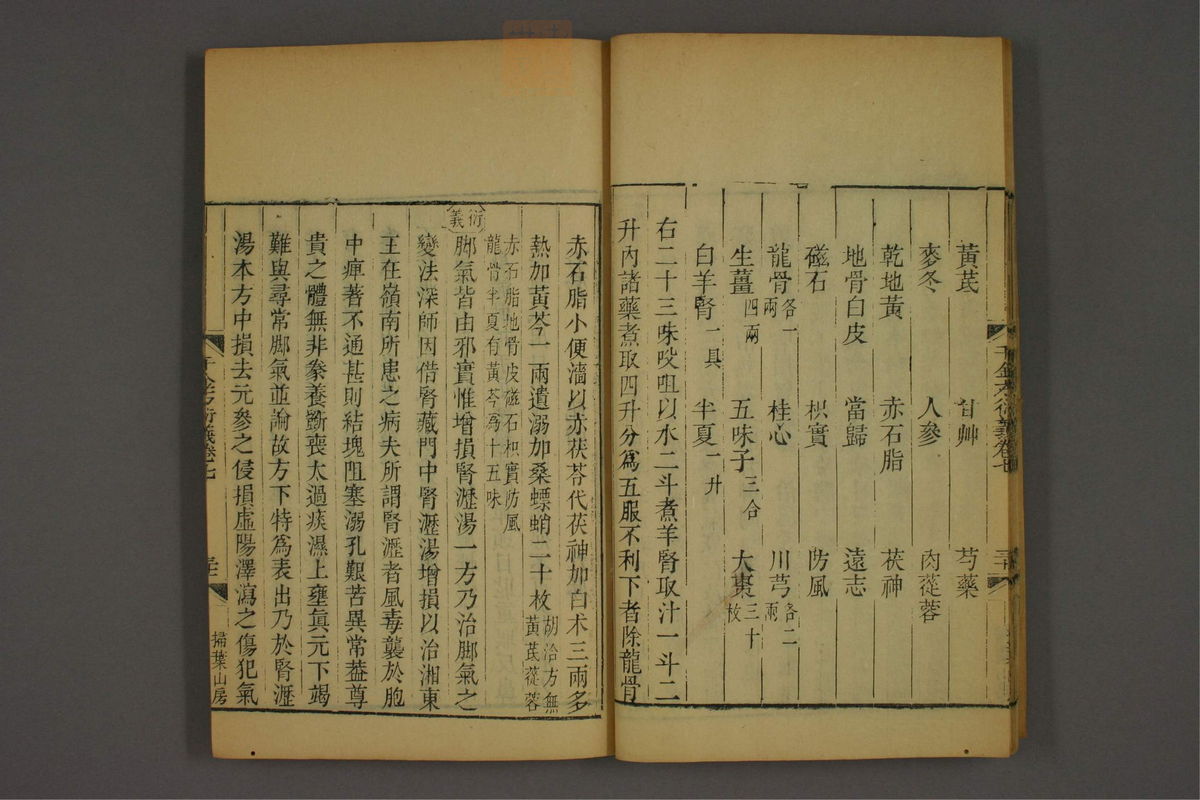 黃芪　甘艸　芍藥
麥冬　人參　肉蓯蓉
乾地黃　赤石脂　茯神
地骨白皮　當歸　遠志
磁石　枳實　防風
龍骨各一兩　桂心　川芎各二兩
生薑四兩　五味子三合　大棗三十枚
白羊腎一具　半夏一升
右二十三味㕮咀以水二斗煮羊腎取汁一斗二
升內諸藥煮取四升分爲五服不利下者除龍骨
赤石脂小便濇以赤茯苓代茯神加白术三兩多
熱加黃芩一兩遺溺加桑螵蛸二十枚胡洽方無黃芪蓯蓉
赤石脂地骨皮磁石枳實防風龍骨半夏有黃芩爲十五味
衍義
脚氣皆由邪實惟增損腎瀝湯一方乃治脚氣之
變法深師因借腎藏門中腎瀝湯增損以治湘東
王在嶺南所患之病夫所謂腎瀝者風毒襲於胞
中痺著不通甚則結塊阻塞溺孔艱苦異常葢尊
貴之體無非豢養斲喪太過痰濕上壅眞元下竭
難與尋常脚氣並論故方下特爲表出乃於腎瀝
湯本方中損去元參之侵損虛陽澤瀉之傷犯氣
千金方衍義卷七
掃葉山房